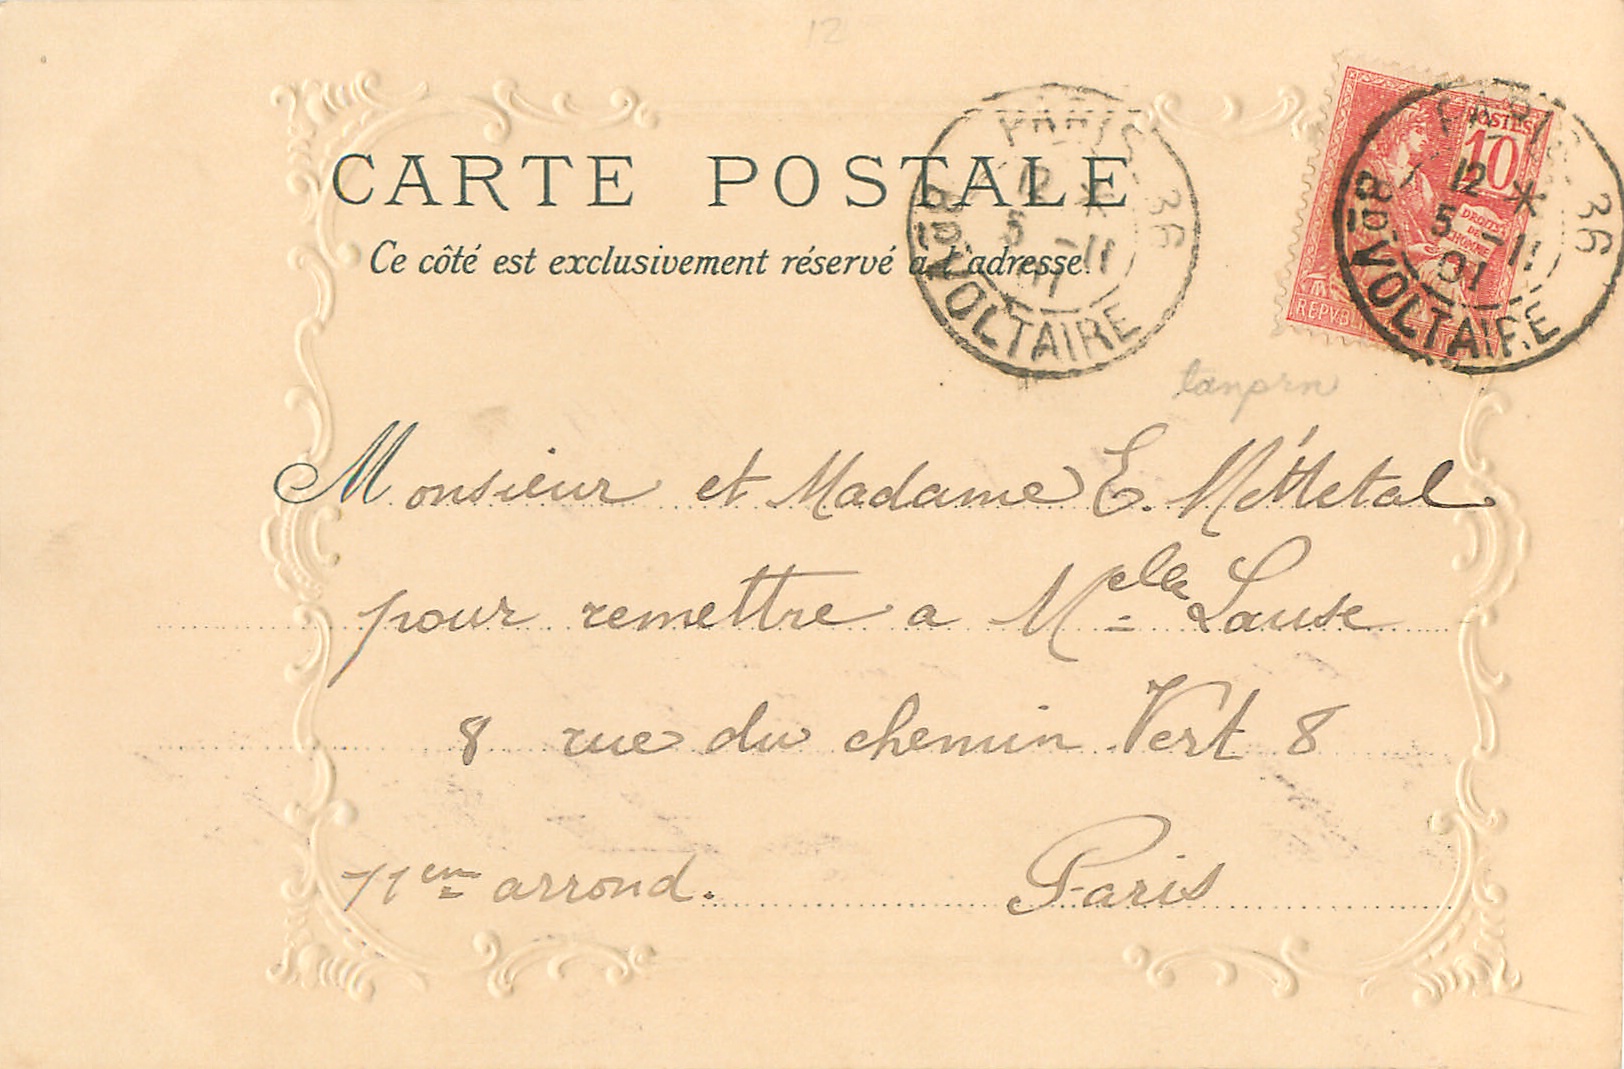 12
CARTE POSTALE
Ce côté est exclusivement réservé à l'adresse.
PARIS - 36
12 *
5 - 11
01
Bd VOLTAIRE
POSTES
10
DROITS
DE
L'HOMME
REPVBLI
PARIS - 36
12 *
5 - 11
01
Bd VOLTAIRE
Monsieur et Madame E.
pour remettre a Melle Lause
8 rue du chemin Vert 8
11em arrond. Paris